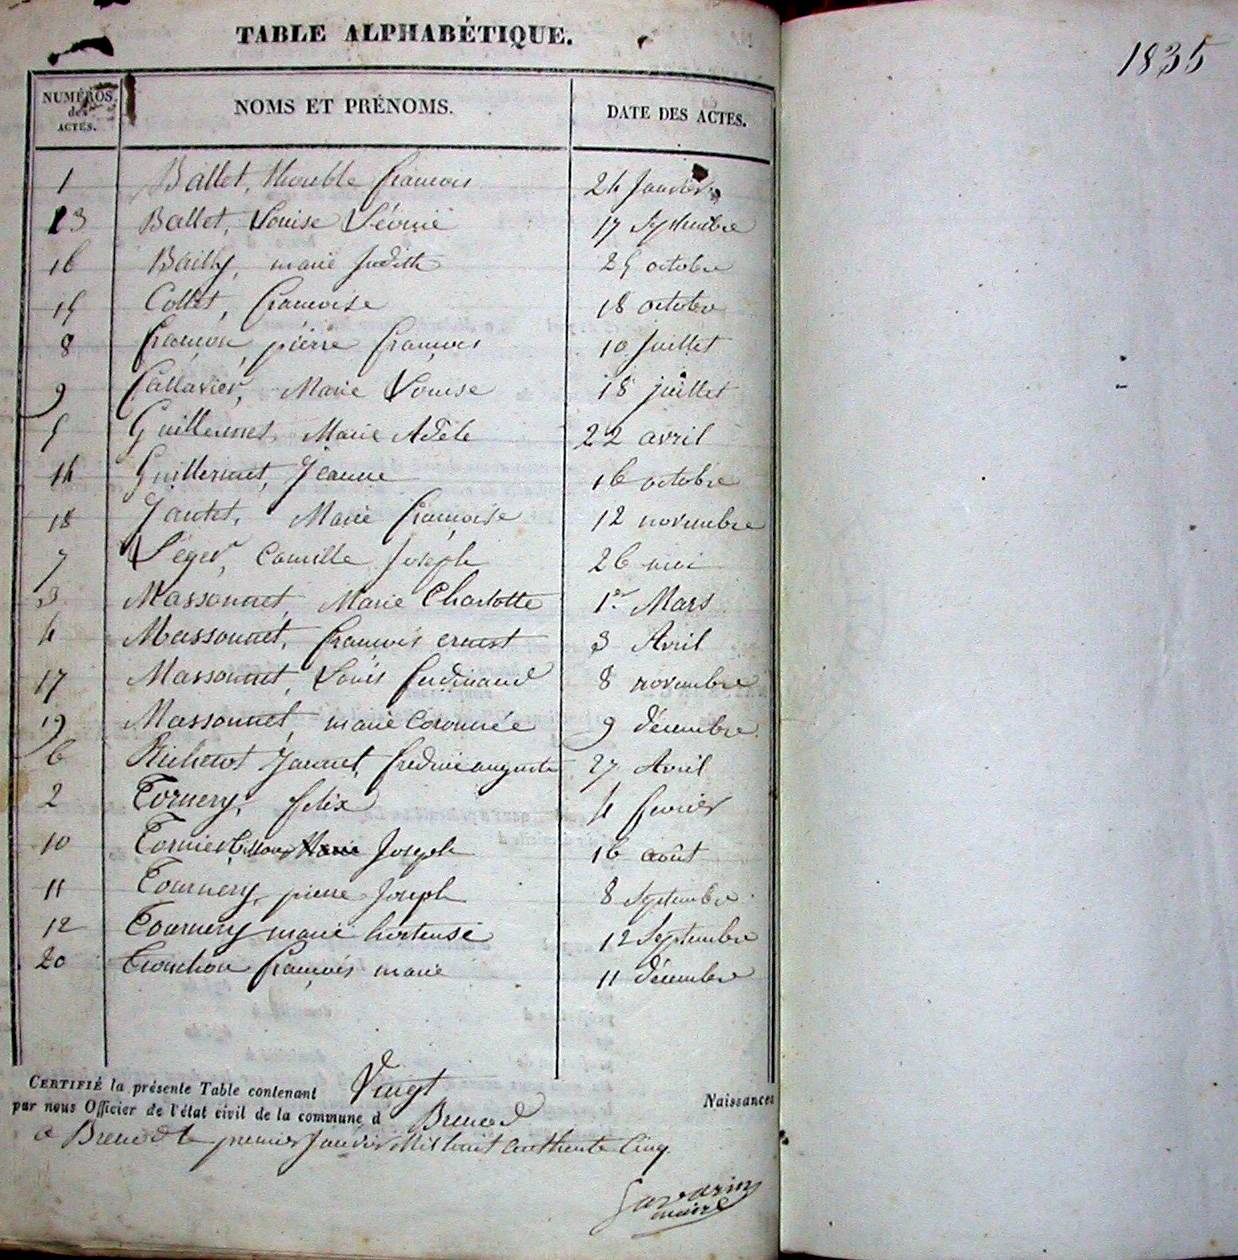 TABLE ALPHABÉTIQUE.
1835
NUMÉROS des ACTES. NOMS ET PRÉNOMS. DATE DES ACTES.
1 Ballet, françois 24 Janvier
13 Ballet, Louise Léonie 17 Septembre
16 Bailly, marie Judith 25 octobre
15 Collet, françoise 18 octobre
8 françon, pierre françois 10 Juillet
9 Callavier, Marie Louise 18 juillet
5 Guillermet, Marie Adèle 22 avril
14 Guillermet, Jeanne 16 octobre
18 Jantet, Marie françoise 12 novembre
7 Léger, Camille Joseph 26 mai
3 Massonnet, Marie Charlotte 1er Mars
4 Massonnet, françois ernest 3 Avril
17 Massonnet, Louis ferdinand 8 novembre
19 Massonnet, marie 9 décembre
6 auguste 27 Avril
2 Tornery, felix 4 fevrier
10 Tornier Joseph 16 août
11 Tournery, pierre Joseph 8 Septembre
12 Tournery marie hortense 12 Septembre
20 Tronchon françois marie 11 décembre
CERTIFIÉ la présente Table contenant Vingt Naissances
par nous Officier de l'état civil de la commune d Brenod
a Brenod le premier Janvier Mil huit cent trente Cinq
Savarin
maire